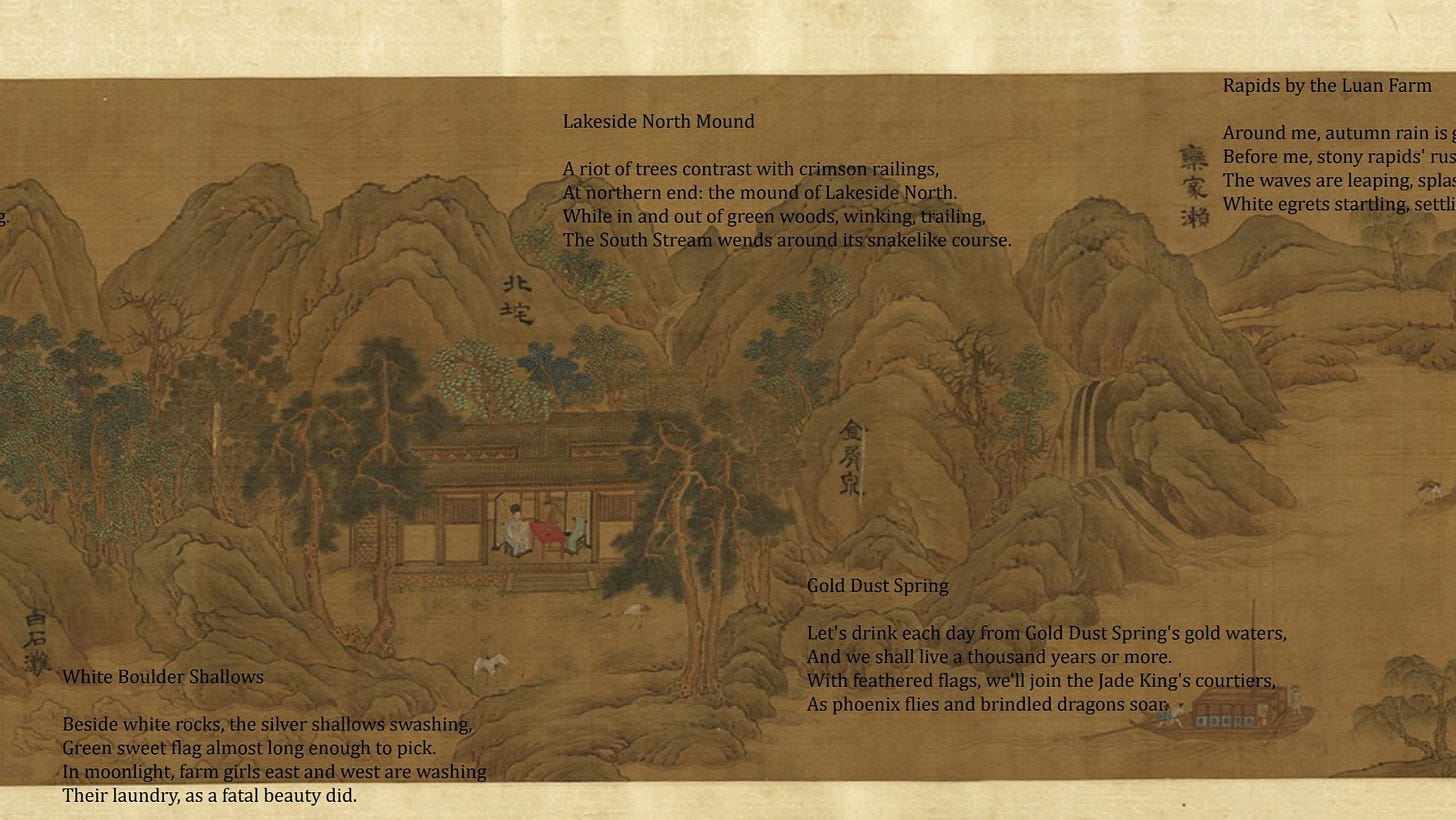 Rapids by the Luan Farm
Around me, autumn rain is g
Before me, stony rapids' rus
The waves are leaping, splas
White egrets startling, settli
欒家瀨
Lakeside North Mound
A riot of trees contrast with crimson railings,
At northern end: the mound of Lakeside North.
While in and out of green woods, winking, trailing,
The South Stream wends around its snakelike course.
北垞
金屑泉
Gold Dust Spring
Let's drink each day from Gold Dust Spring's gold waters,
And we shall live a thousand years or more.
With feathered flags, we'll join the Jade King's courtiers,
As phoenix flies and brindled dragons soar.
g.
白石灘
White Boulder Shallows
Beside white rocks, the silver shallows swashing,
Green sweet flag almost long enough to pick.
In moonlight, farm girls east and west are washing
Their laundry, as a fatal beauty did.